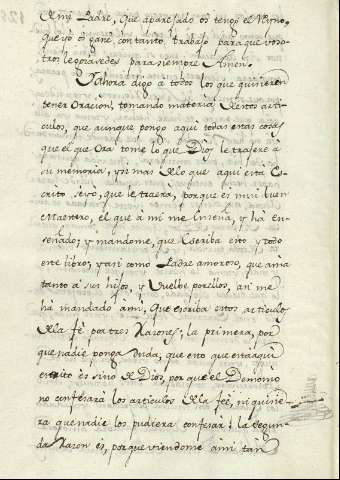 A mi Padre, que aparejado os tengo el Reyno,
que yo os gané con tanto trabajo para que voso-
tros le goçaredes para siempre Amen.
Y ahora digo a todos los que quisieren
tener oracion, tomando materia destos arti-
culos, que aunque pongo aqui todas estas cosas
que el que ora tome lo que Dios le trajere á
su memoria, y si mas de lo que aqui está es-
crito fuere, que le traera, porque es mui buen
Maestro, el que á mi me enseña, y há en-
señado; y mandome, que escriba esto y todo
este libro; y asi como Padre amoroso, que ama
tanto a sus hijos, y vuelbe por ellos, asi me
há mandado ámi, que escriba estos articulos
de la fé por tres raçones; la primera, por
que nadie ponga duda, que esto que esta aqui
escrito es sino de Dios, por que el Demonio
no confesará los articulos de la feé, ni quisie-
ra que nadie los pudiera confesar: la segun-
da raçon es, porque viendome ami tan